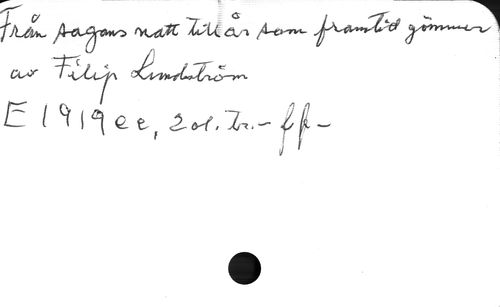 Från sagans natt till år som framtid gömmer
av Filip Lundström
E 1919 ee, 2 ol. tr. - ff -